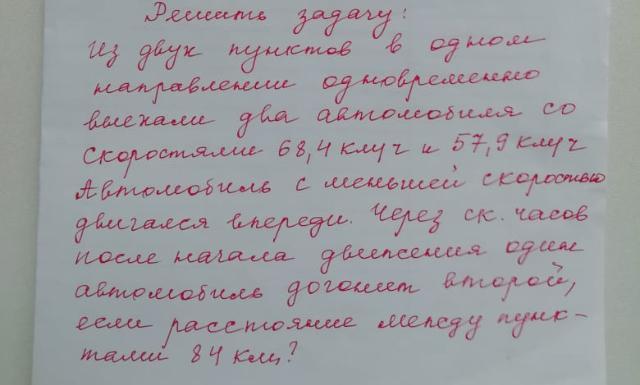 Решить задачу:
Из двух пунктов в одном
направлении одновременно
выехали два автомобиля со
скоростями 68,4 км/ч и 57,9 км/ч
Автомобиль с меньшей скоростью
двигался впереди. Через ск. часов
после начала движения один
автомобиль догонит второй,
если расстояние между пунк-
тами 84 км?